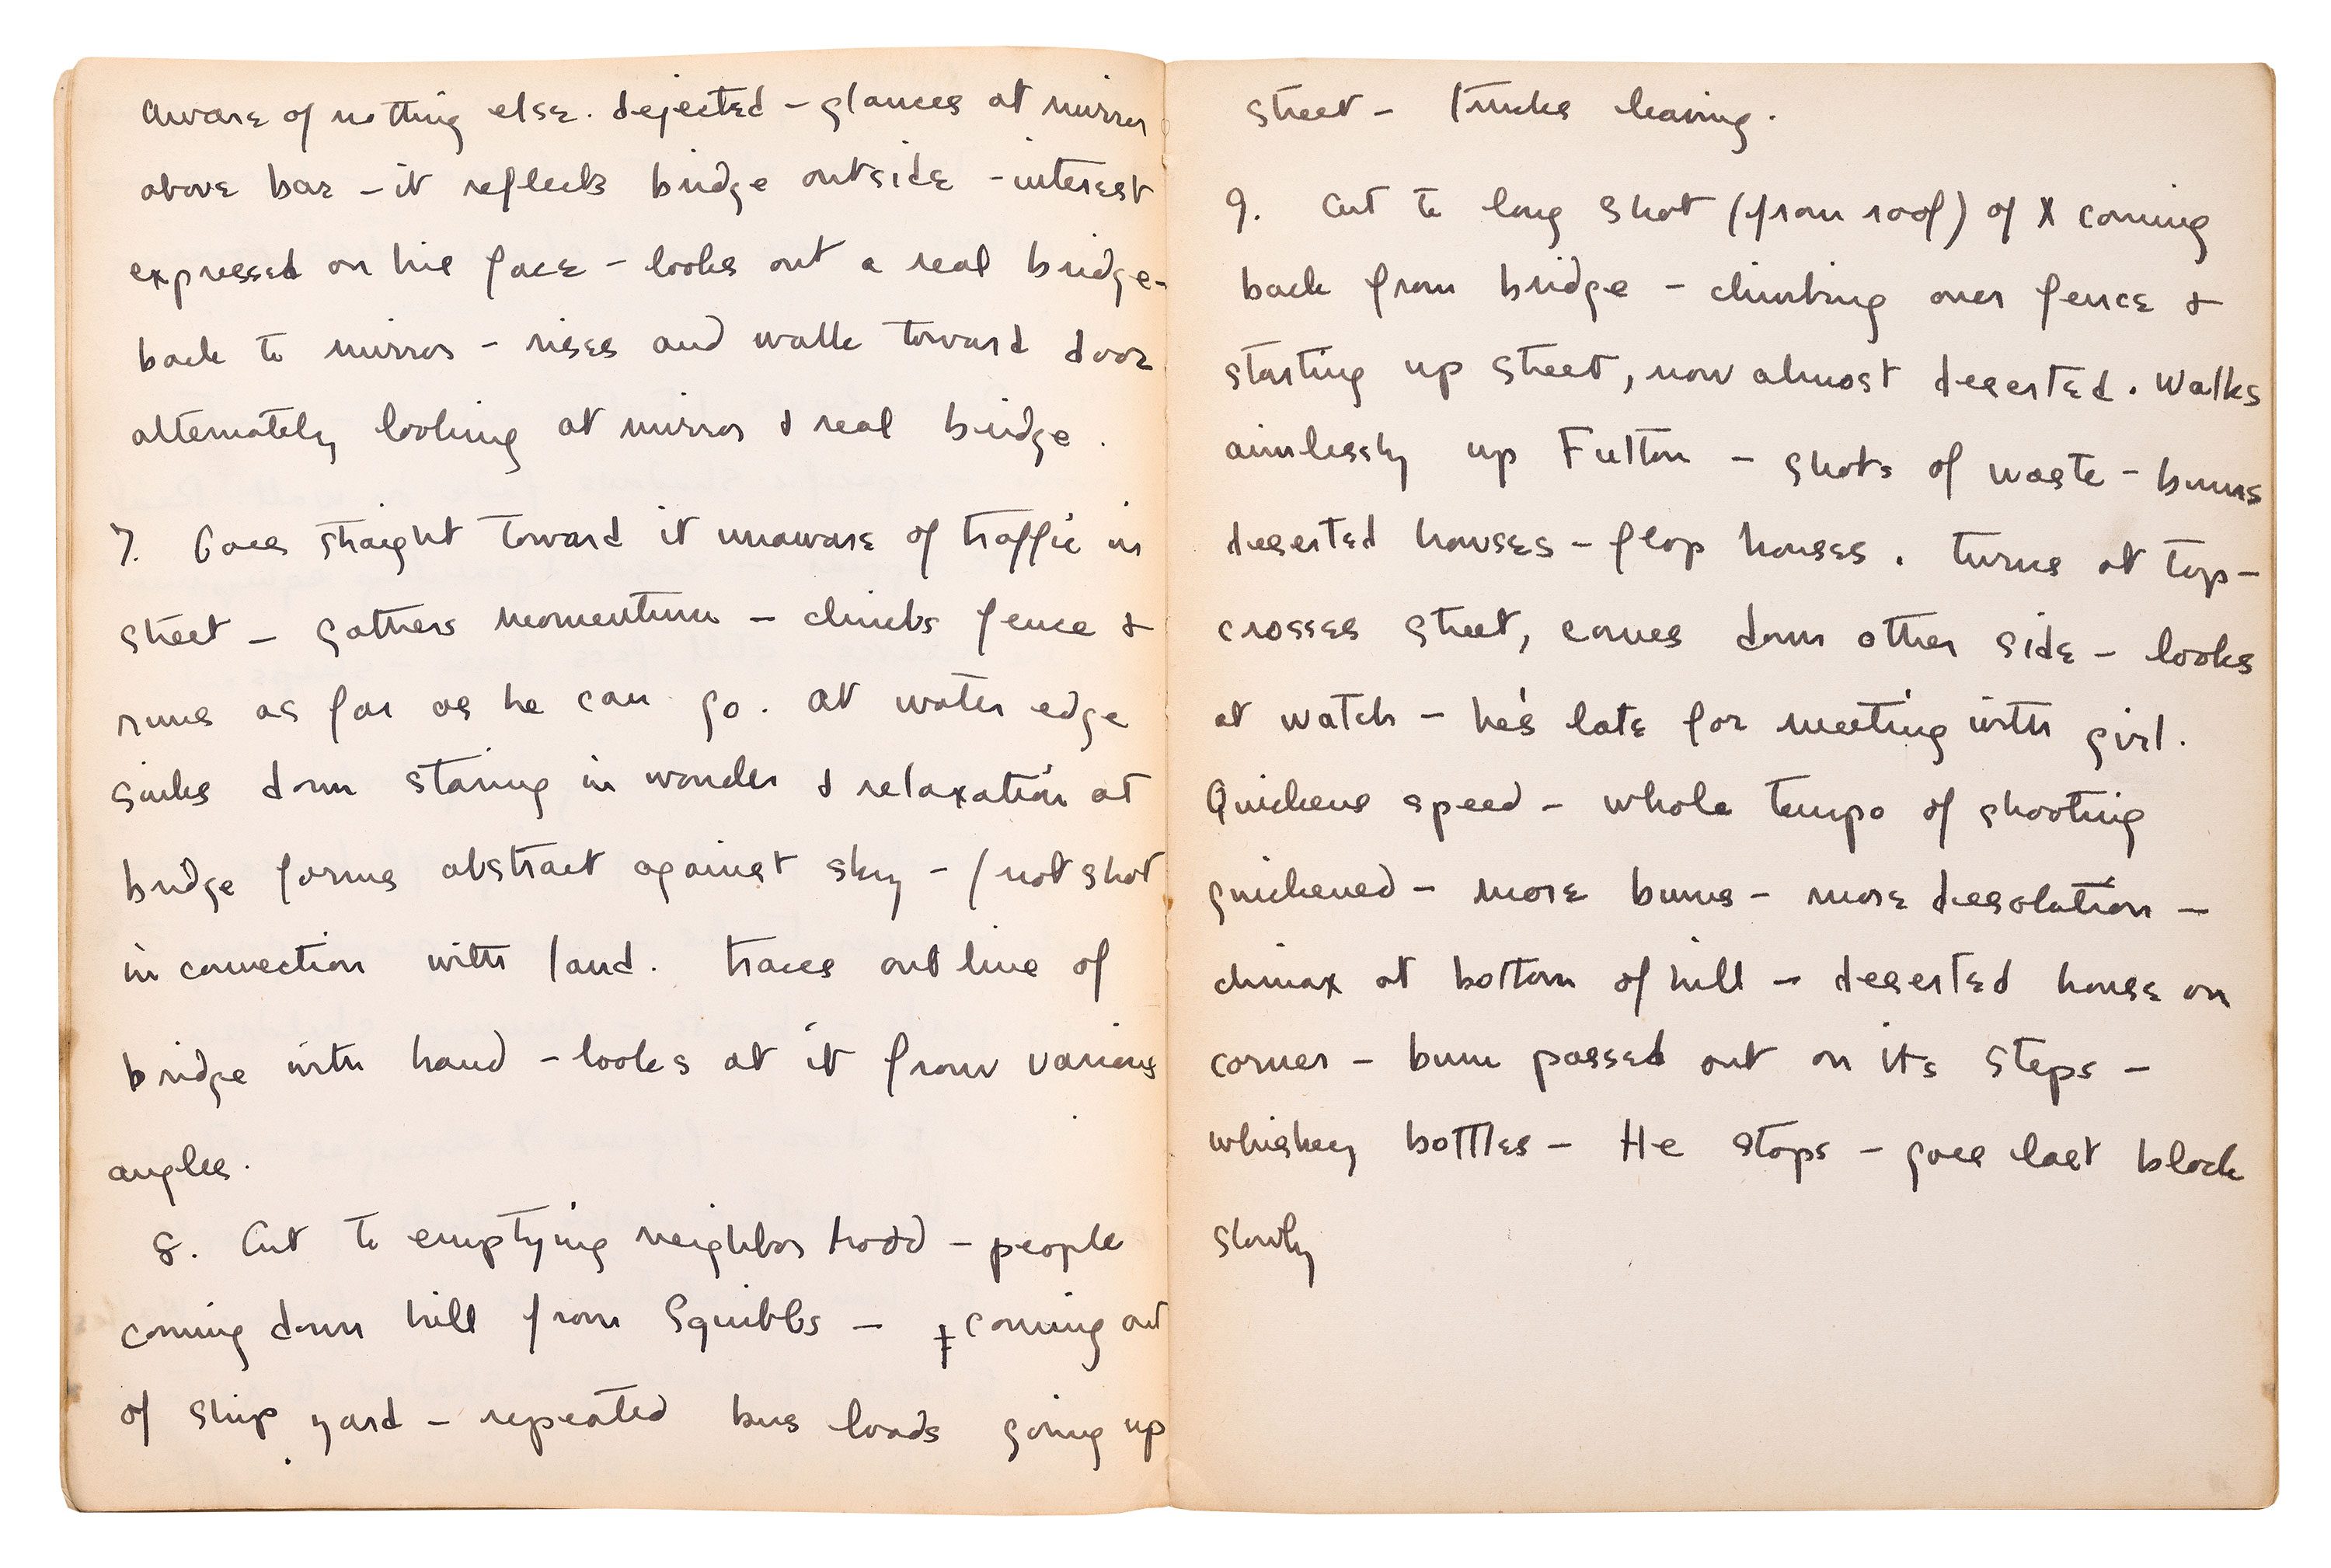 Aware of nothing else. dejected – glances at mirror
above bar – it reflects bridge outside – interest
expressed on his face – looks out a real bridge –
back to mirror – rises and walk toward door
alternately looking at mirror & real bridge.
7. Goes straight toward it unaware of traffic in
street – gathers momentum – climbs fence &
runs as far as he can go. at water edge
sinks down staring in wonder & relaxation at
bridge forms abstract against sky – (not shot
in connection with land. traces outline of
bridge with hand – looks at it from various
angles.
8. Cut to emptying neighborhood – people
coming down hill from Squibbs – coming out
of ship yard – repeated bus loads going up
street – trucks leaving.
9. Cut to long shot (from roof) of X coming
back from bridge – climbing over fence &
starting up street, now almost deserted. Walks
aimlessly up Fulton – shots of waste – bums
deserted houses – flop houses. turns at top –
crosses street, comes down other side – looks
at watch – he's late for meeting with girl.
Quickens speed – whole tempo of shooting
quickened – more bums – more desolation –
climax at bottom of hill – deserted house on
corner – bum passed out on its steps –
whiskey bottles – He stops – goes last block
slowly